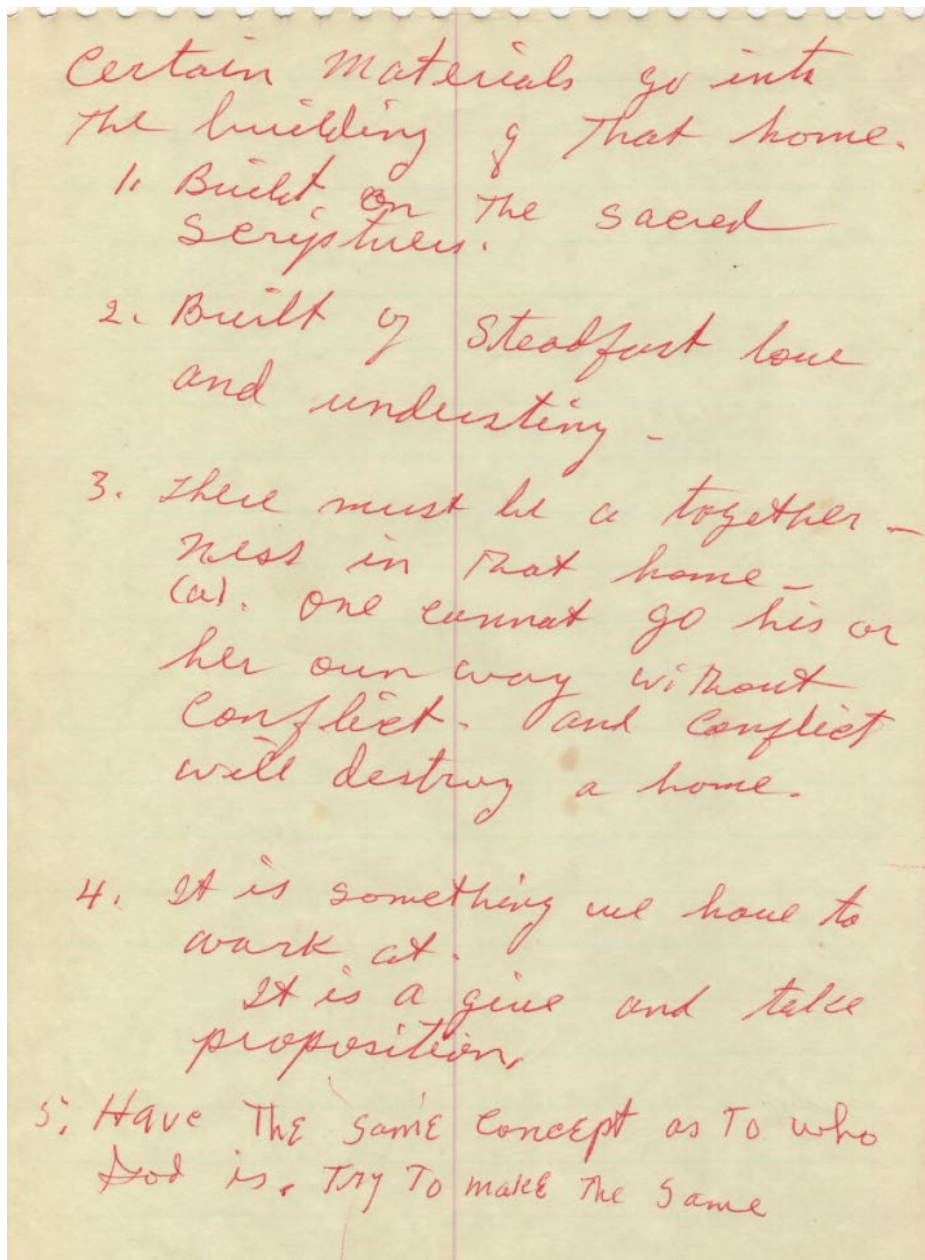 Certain Materials go into
the building of That home.
1. Built on The sacred
Scriptures.
2. Built of Steadfast love
and understing -
3. There must be a together -
ness in That home -
(a). One cannot go his or
her own way without
Conflict. and Conflict
will destroy a home.
4. It is something we have to
work at.
It is a give and take
proposition.
5. Have The same Concept as To who
God is. Try To make The Same